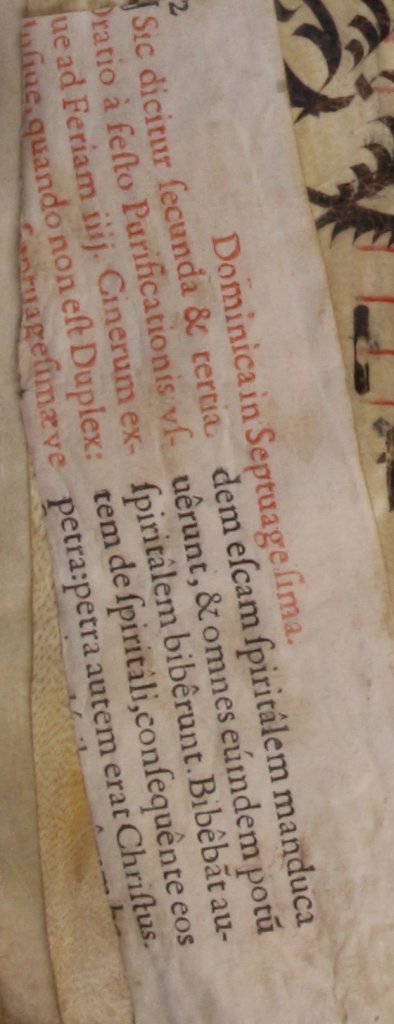 Dominica in Septuagesima.
2
Sic dicitur ſecunda & tertia
Oratio à feſto Purificationis vſ-
ue ad Feriam iiij. Cinerum ex-
quando non eſt Duplex:
ve
dem eſcam ſpiritâlem manduca
uêrunt, & omnes eúmdem potū
ſpiritâlem bibêrunt. Bibêbāt au-
tem de ſpiritáli, conſequênte eos
petra: petra autem erat Chriſtus.